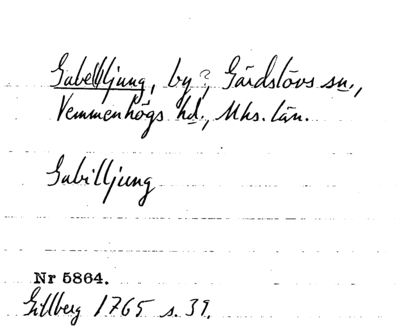 Gabelljung, by?, Gärdslövs sn.,
Vemmenhögs hd., Mhs. län.
Gabilljung
Nr 5864.
Gillberg 1765 s. 39.